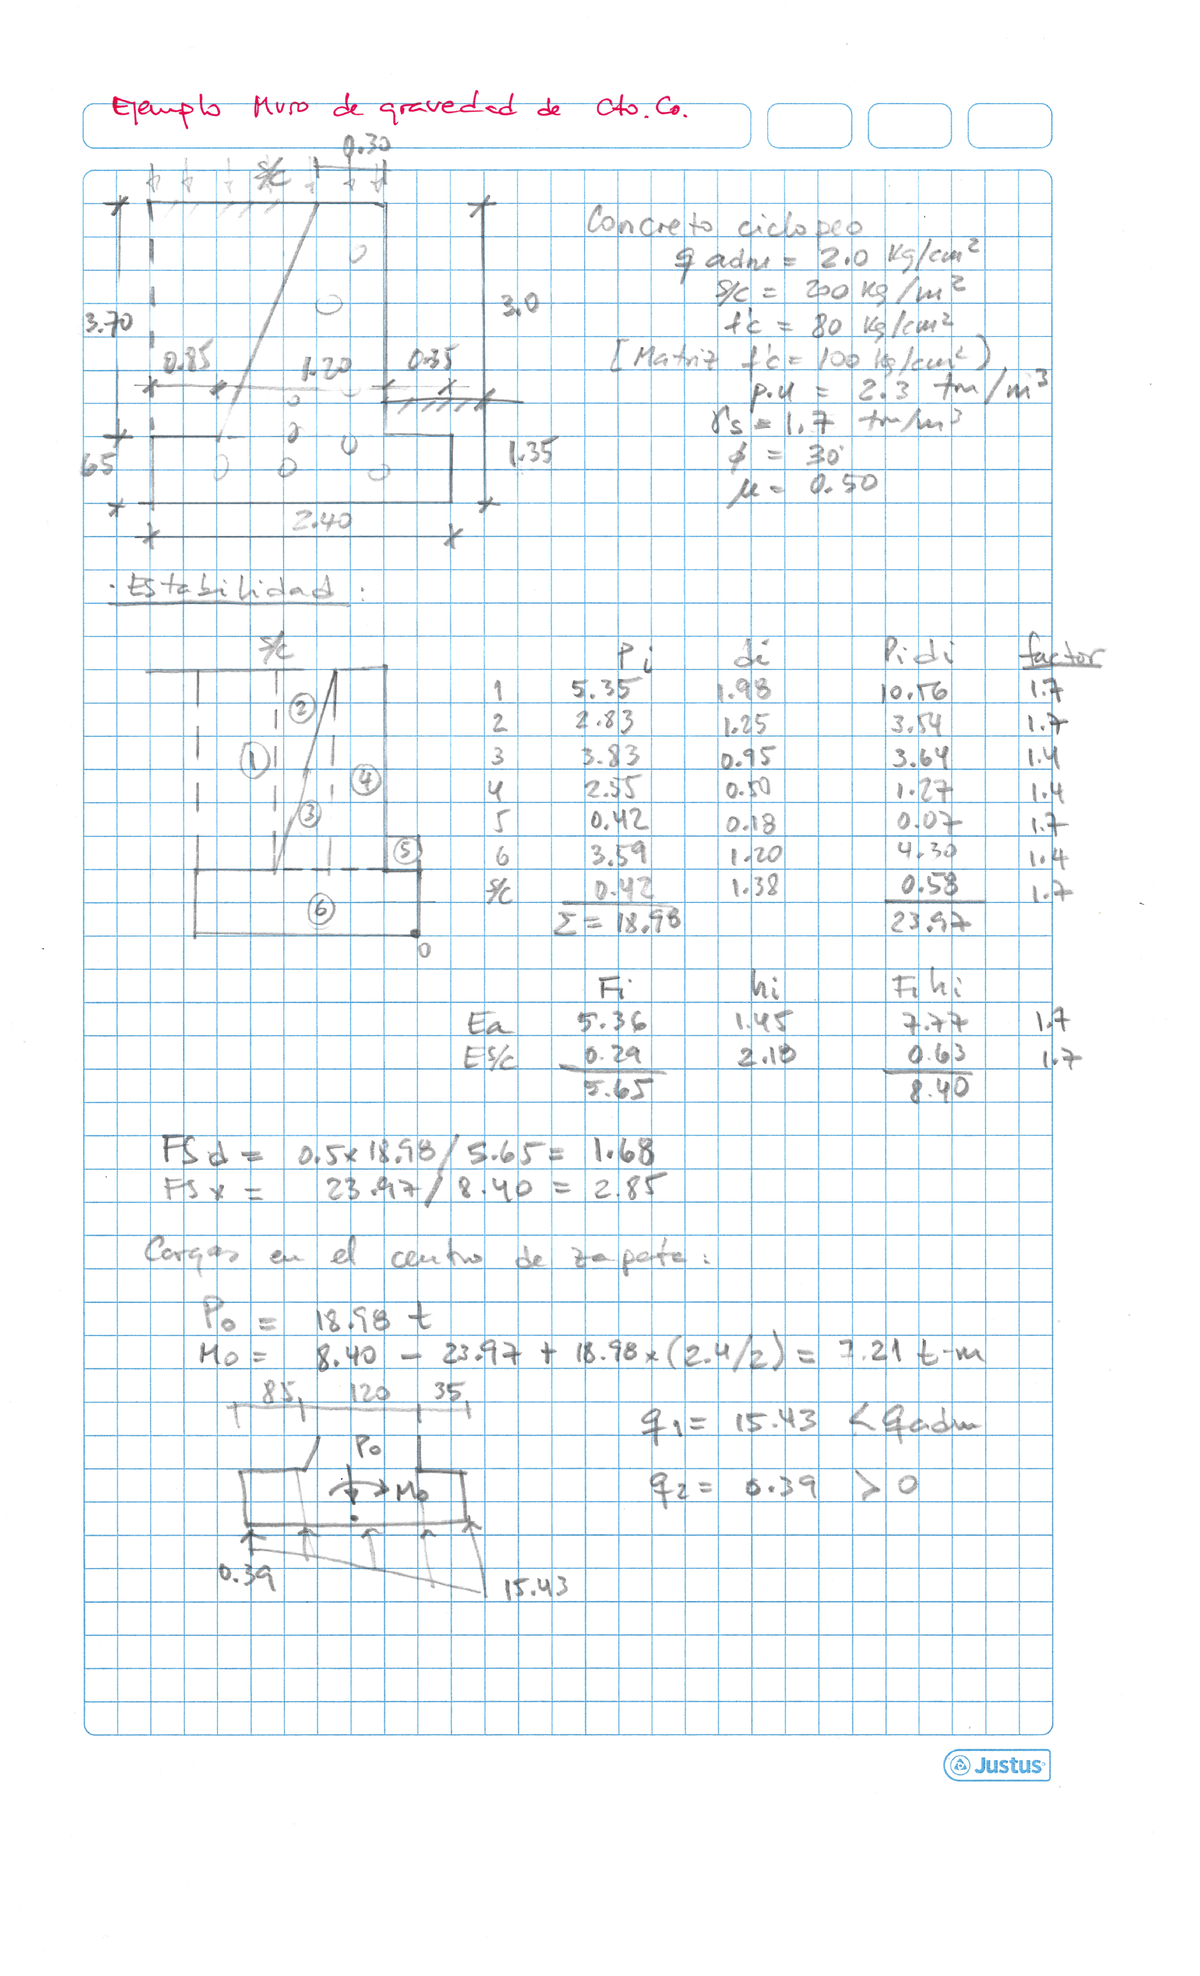 Ejemplo Muro de gravedad de Cto. Co.
0.30
s/c
Concreto ciclopeo
q adm = 2.0 Kg/cm²
s/c = 200 Kg/m²
f'c = 80 Kg/cm²
[Matriz f'c = 100 Kg/cm²)
p.u = 2.3 tm/m³
γs = 1.7 tm/m³
ϕ = 30°
μ = 0.50
3.70
3.0
0.85 1.20 0.35
65
1.35
2.40
· Estabilidad :
s/c
Pi di Pidi factor
1 5.35 1.98 10.56 1.7
2 2.83 1.25 3.54 1.7
3 3.83 0.95 3.64 1.4
4 2.55 0.50 1.27 1.4
5 0.42 0.18 0.07 1.7
6 3.59 1.20 4.30 1.4
s/c 0.42 1.38 0.58 1.7
Σ = 18.98 23.97
1 2 3 4 5 6
0
Fi hi Fihi
Ea 5.36 1.45 7.77 1.7
Es/c 0.29 2.18 0.63 1.7
5.65 8.40
FSd = 0.5x18.98/5.65 = 1.68
FSv = 23.97/8.40 = 2.85
Cargas en el centro de zapata :
Po = 18.98 t
Mo = 8.40 - 23.97 + 18.98x(2.4/2) = 7.21 t-m
85 120 35
q1 = 15.43 < qadm
Po
Mo
q2 = 0.39 > 0
0.39
15.43
Justus